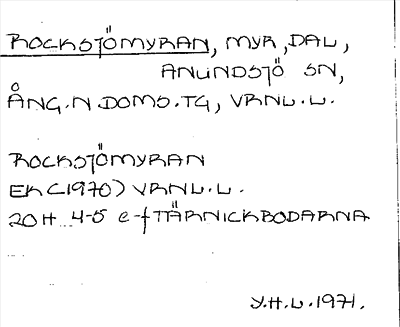 ROCKSJÖMYRAN, MYR, DAL,
ANUNDSJÖ SN,
ÅNG.N.DOMS.TG, VRNL.L.
ROCKSJÖMYRAN
EK (1970) VRNL.L.
20H 4-5 e-f TÄRNICKBODARNA
Y.H.L.1971.